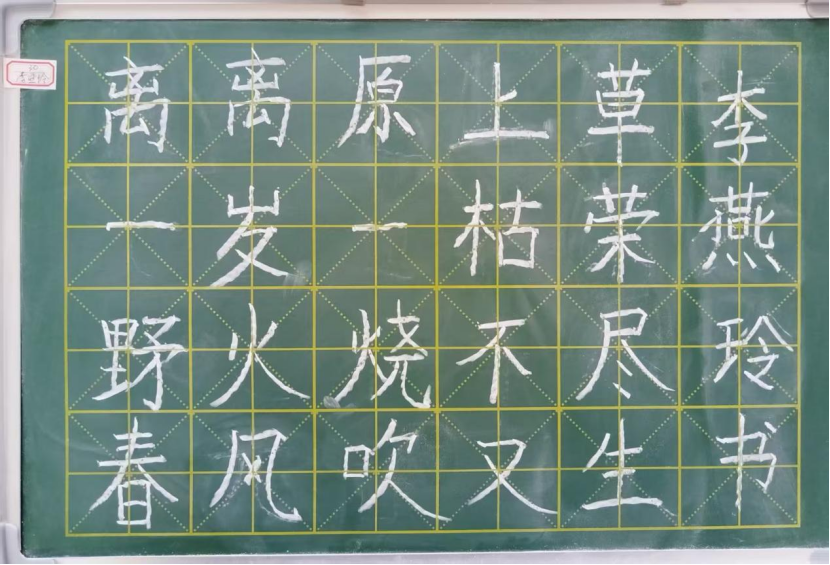 离离原上草李
一岁一枯荣燕
野火烧不尽玲
春风吹又生书